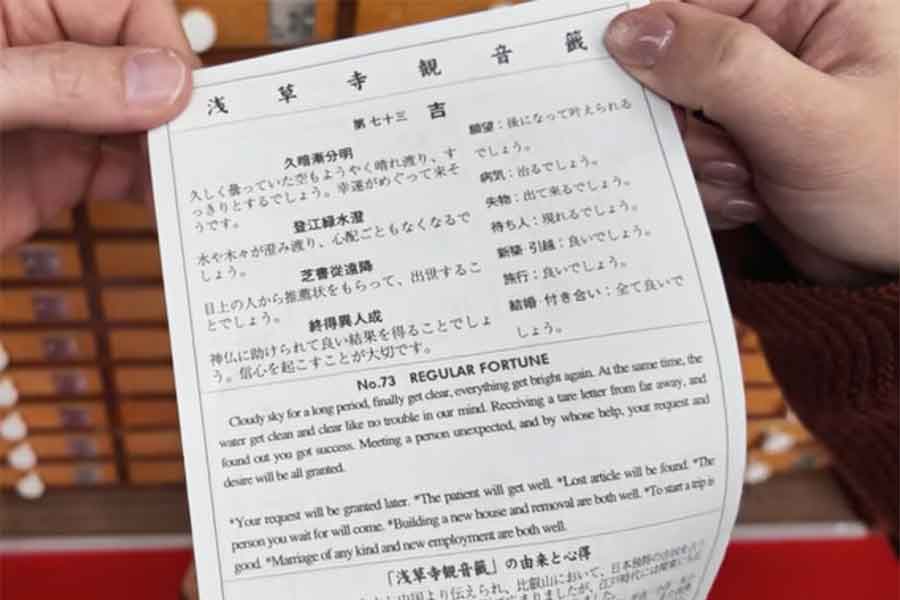 浅草寺観音籤
第七十三 吉
久暗漸分明
久しく曇っていた空もようやく晴れ渡り、す
っきりとするでしょう。幸運がめぐって来そ
うです。
登江緑水澄
水や木々が澄み渡り、心配ごともなくなるで
しょう。
芝書從遠降
目上の人から推薦状をもらって、出世するこ
とでしょう。
終得異人成
神仏に助けられて良い結果を得ることでしょ
う。信心を起こすことが大切です。
願望：後になって叶えられる
でしょう。
病気：治るでしょう。
失物：出て来るでしょう。
待ち人：現れるでしょう。
新築·引越：良いでしょう。
旅行：良いでしょう。
結婚·付き合い：全て良いで
しょう。
No.73 REGULAR FORTUNE
Cloudy sky for a long period, finally get clear, everything get bright again. At the same time, the
water get clean and clear like no trouble in our mind. Receiving a tare letter from far away, and
found out you got success. Meeting a person unexpected, and by whose help, your request and
desire will be all granted.
*Your request will be granted later. *The patient will get well. *Lost article will be found. *The
person you wait for will come. *Building a new house and removal are both well. *To start a trip is
good. *Marriage of any kind and new employment are both well.
「浅草寺観音籤」の由来と心得
中国より伝えられ、比叡山において、日本独特の
ましたが、江戸時代には